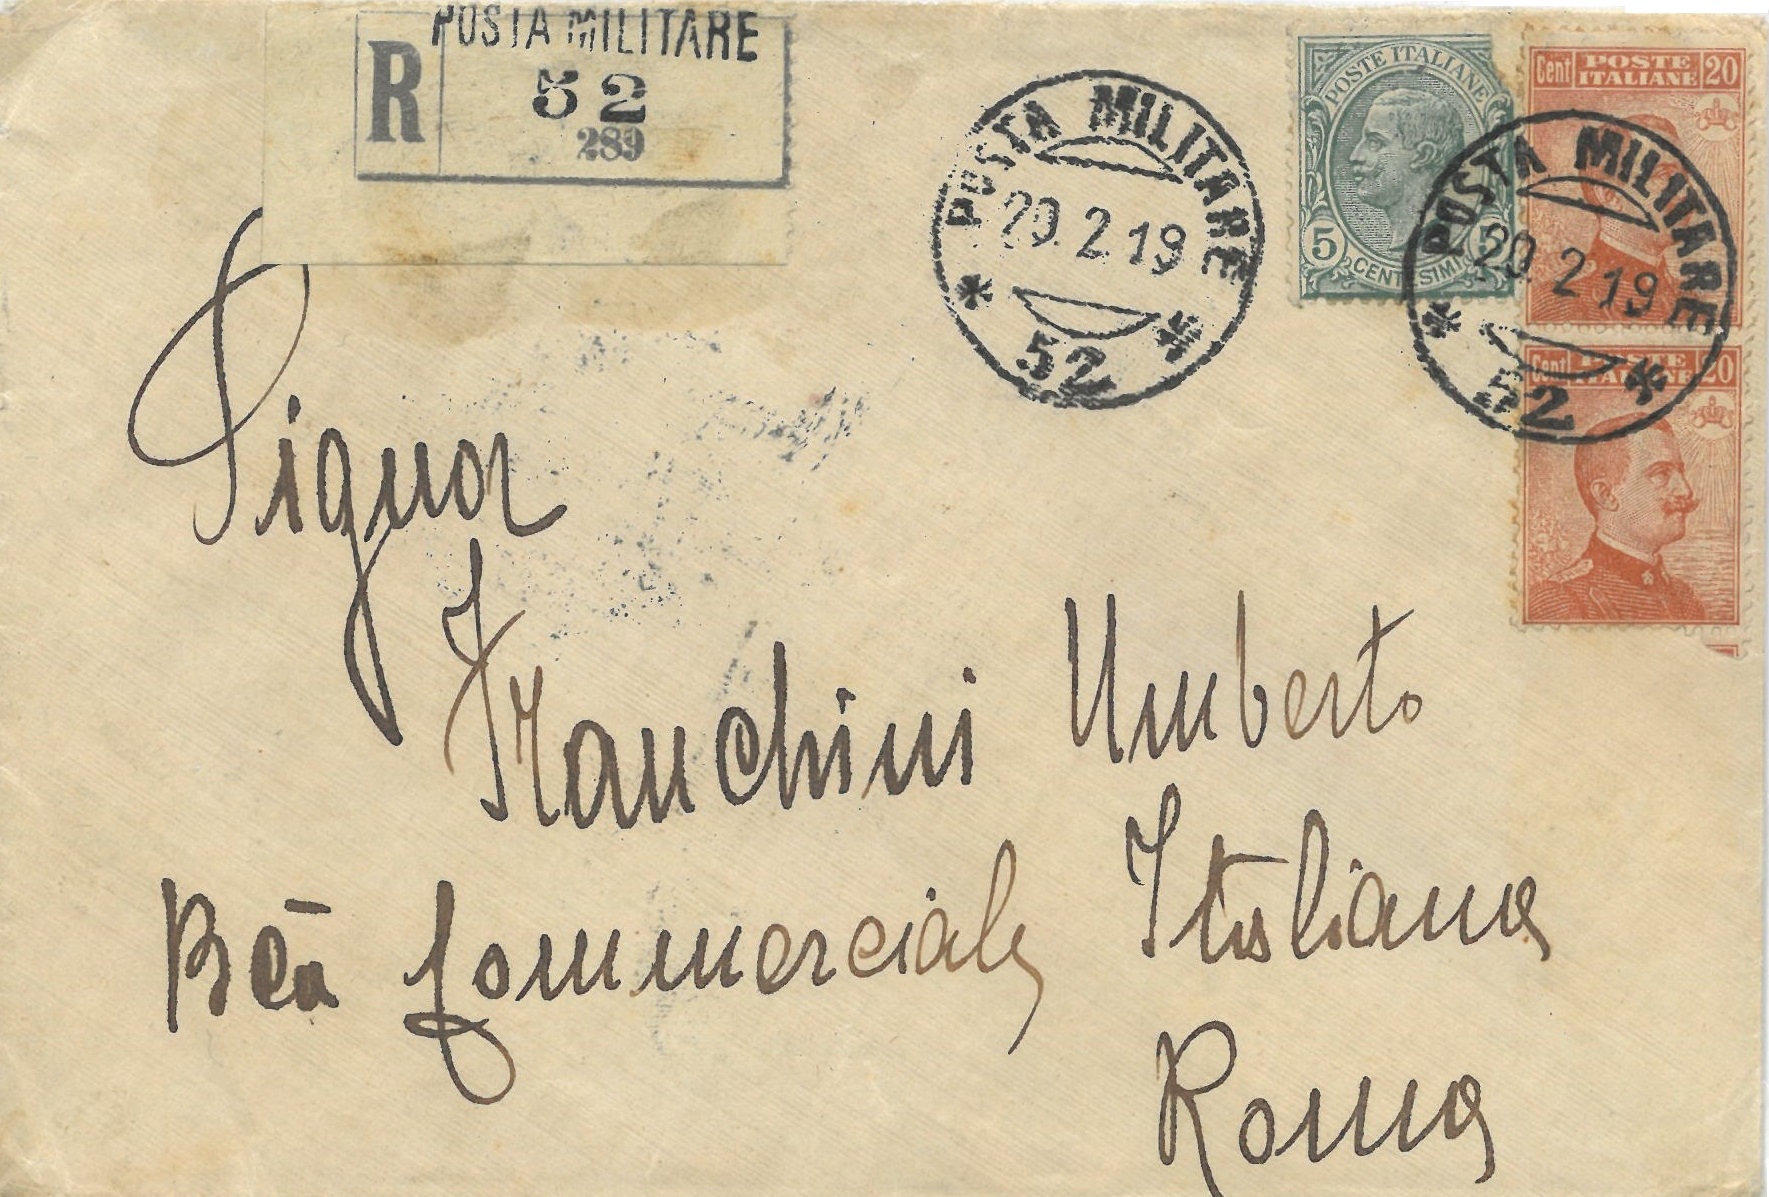 POSTA MILITARE
R
52
289
POSTA MILITARE
20.2.19
52
POSTE ITALIANE
5
5
CENTESIMI
Cent POSTE ITALIANE 20
POSTA MILITARE
20.2.19
52
Cent POSTE ITALIANE 20
Signor
Franchini Umberto
Bca Commerciale Italiana
Roma